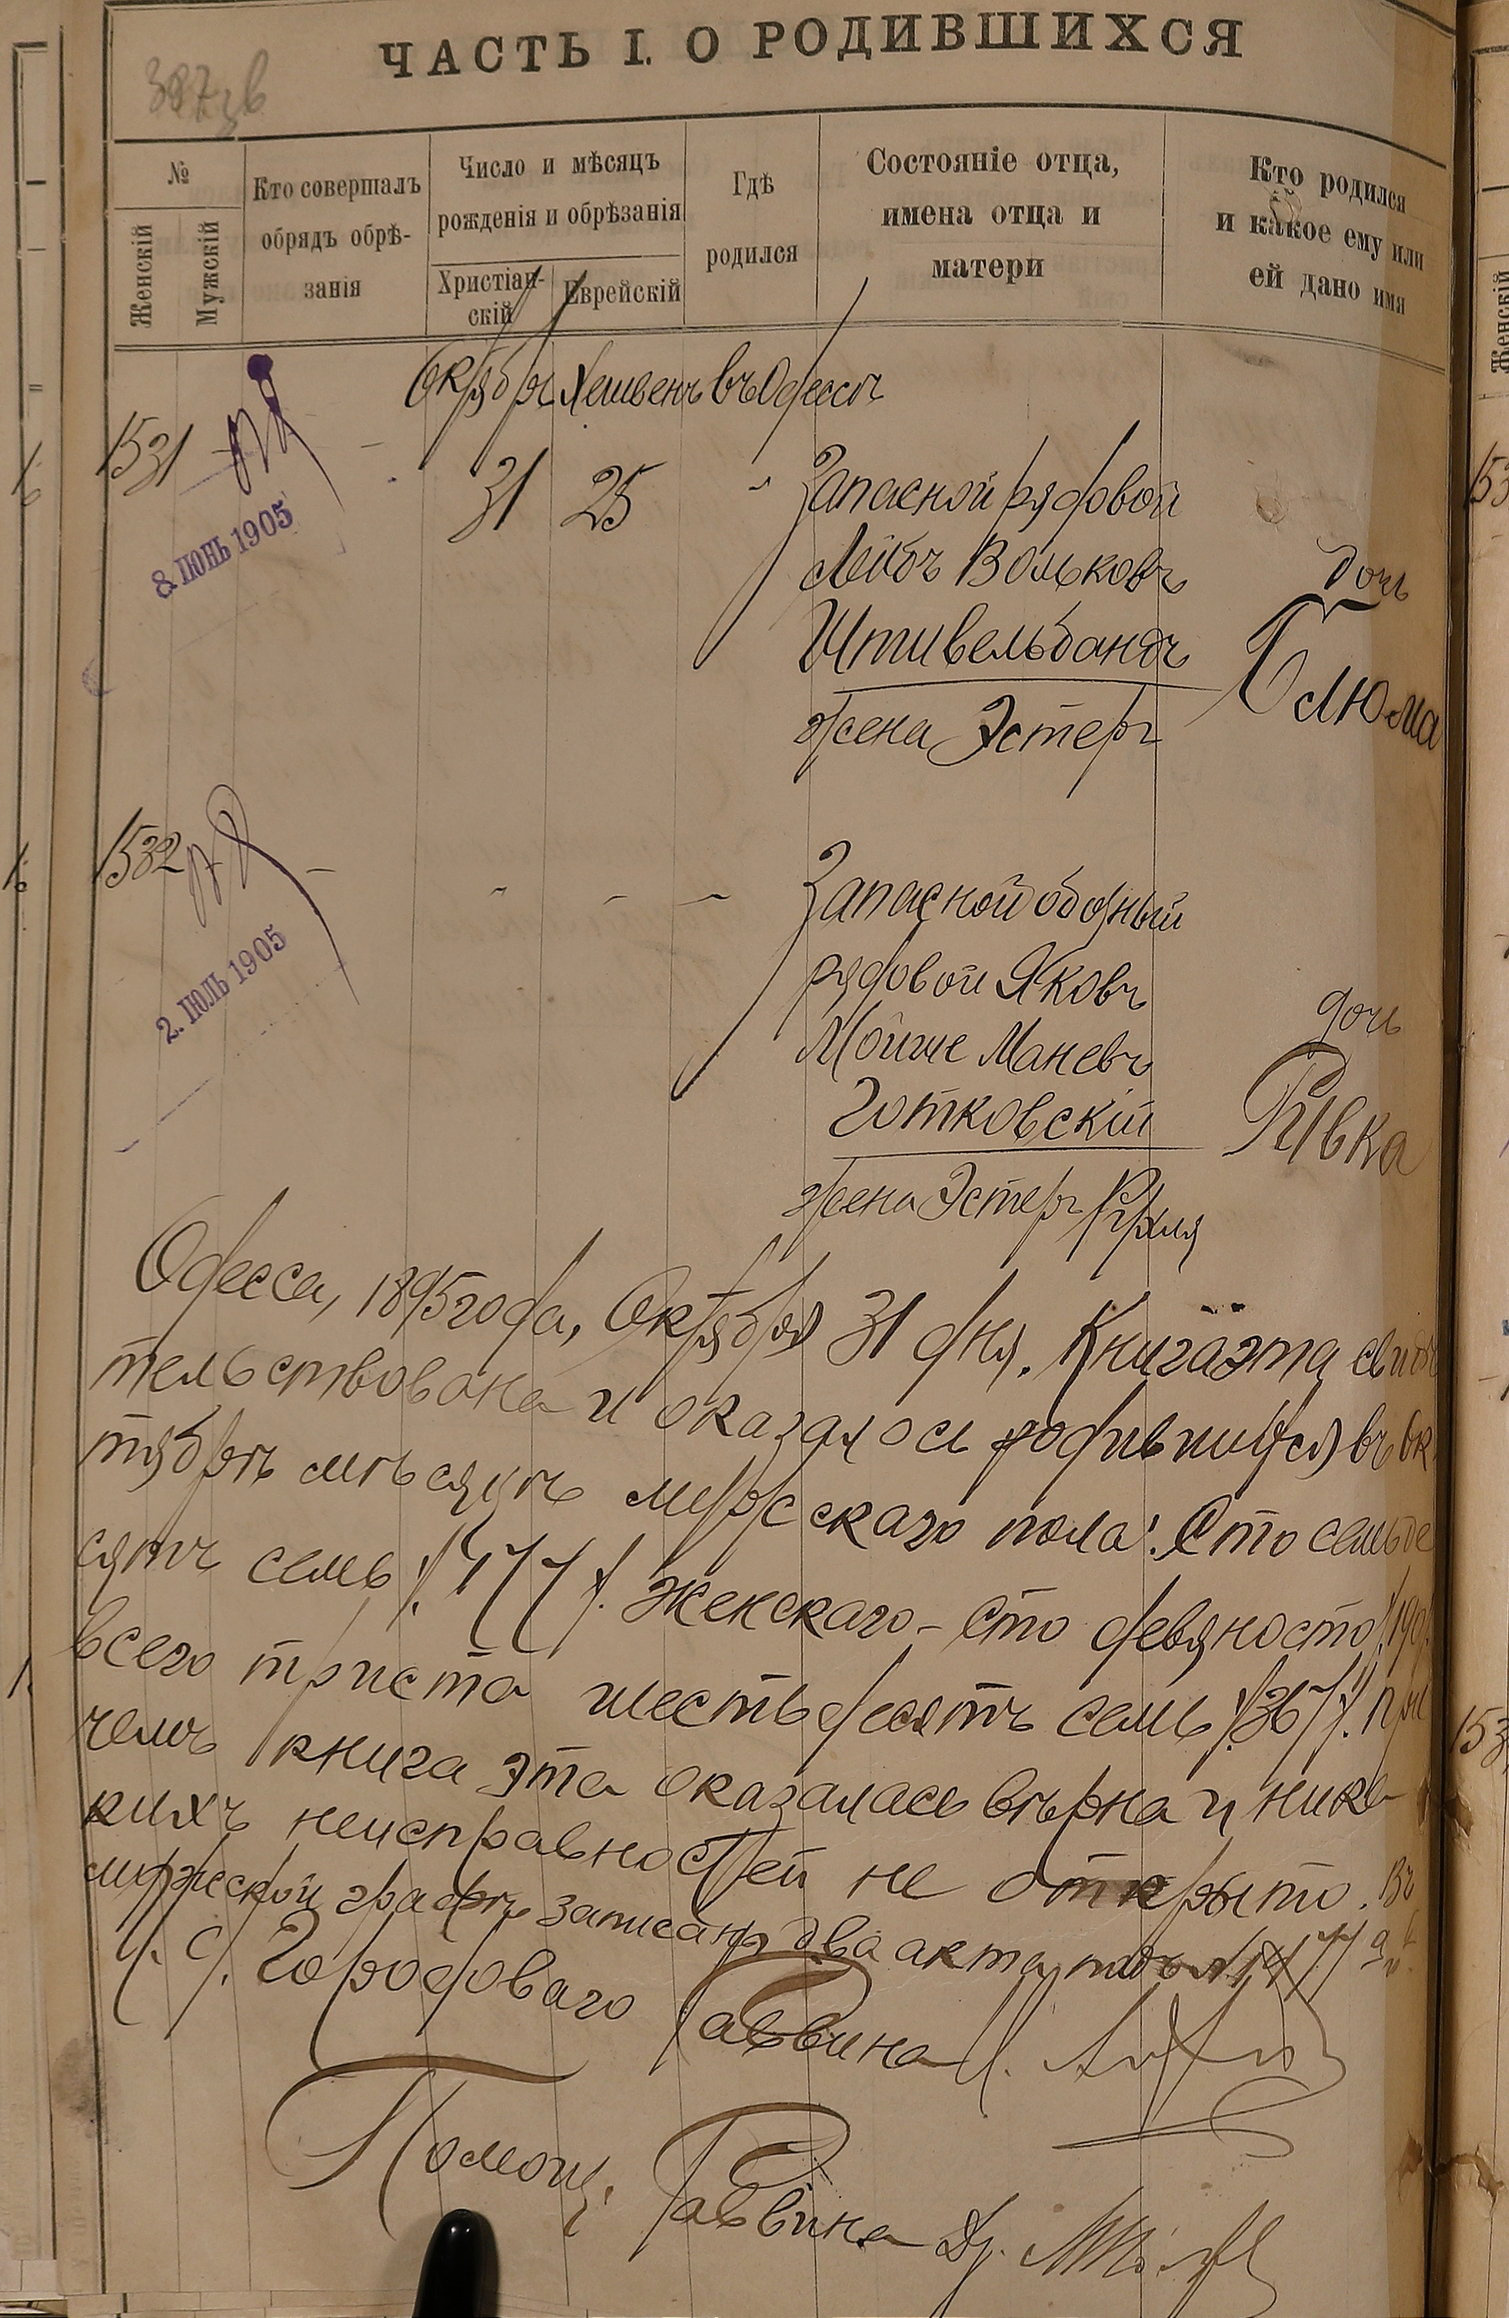 ЧАСТЬ I. О РОДИВШИХСЯ
№
Женскій
Мужскій
Кто совершалъ
обрядъ обрѣ-
занія
Число и мѣсяцъ
рожденія и обрѣзанія
Христіан-
скій
Еврейскій
Гдѣ
родился
Состояніе отца,
имена отца и
матери
Кто родился
и какое ему или
ей дано имя
Октябрь Хешвенъ въ Одессѣ
1531 31 25 Запасной рядовой
8 ІЮНЬ 1905
Лейбъ Вольковъ
Штивельбандъ
жена Эстеръ
дочь
Блюма
1532 Запасной обозный
2. ІЮЛЬ 1905
рядовой Яковъ
Мойше Маневъ
Готковскій
жена Эстеръ Рухля
дочь
Ривка
Одесса, 1895 года, Октября 31 дня. Книга эта свидѣ
тельствована и оказалось родившихся въ Ок
тябрѣ мѣсяцѣ мужскаго пола: Сто семьде
сятъ семь /:177:/. Женскаго – Сто девяносто /:190:/.
всего триста шестьдесятъ семь /:367:/. При
чемъ книга эта оказалась вѣрна и ника-
кихъ неисправностей не открыто. Въ
мужской графѣ записаны два акта подъ № 177
И. д. Городоваго Раввина
Помощ. Раввина Др.